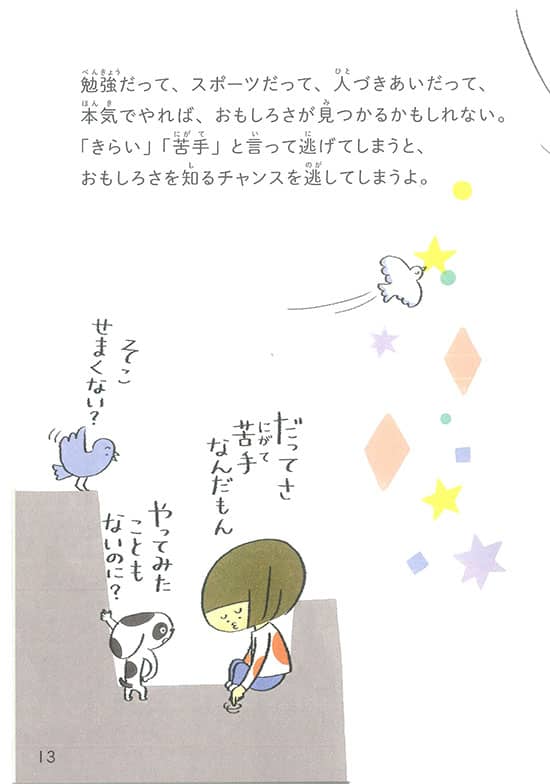 勉強だって、スポーツだって、人づきあいだって、
本気でやれば、おもしろさが見つかるかもしれない。
「きらい」「苦手」と言って逃げてしまうと、
おもしろさを知るチャンスを逃してしまうよ。
そこ
せまくない?
だってさ
苦手
なんだもん
やってみた
ことも
ないのに?
13